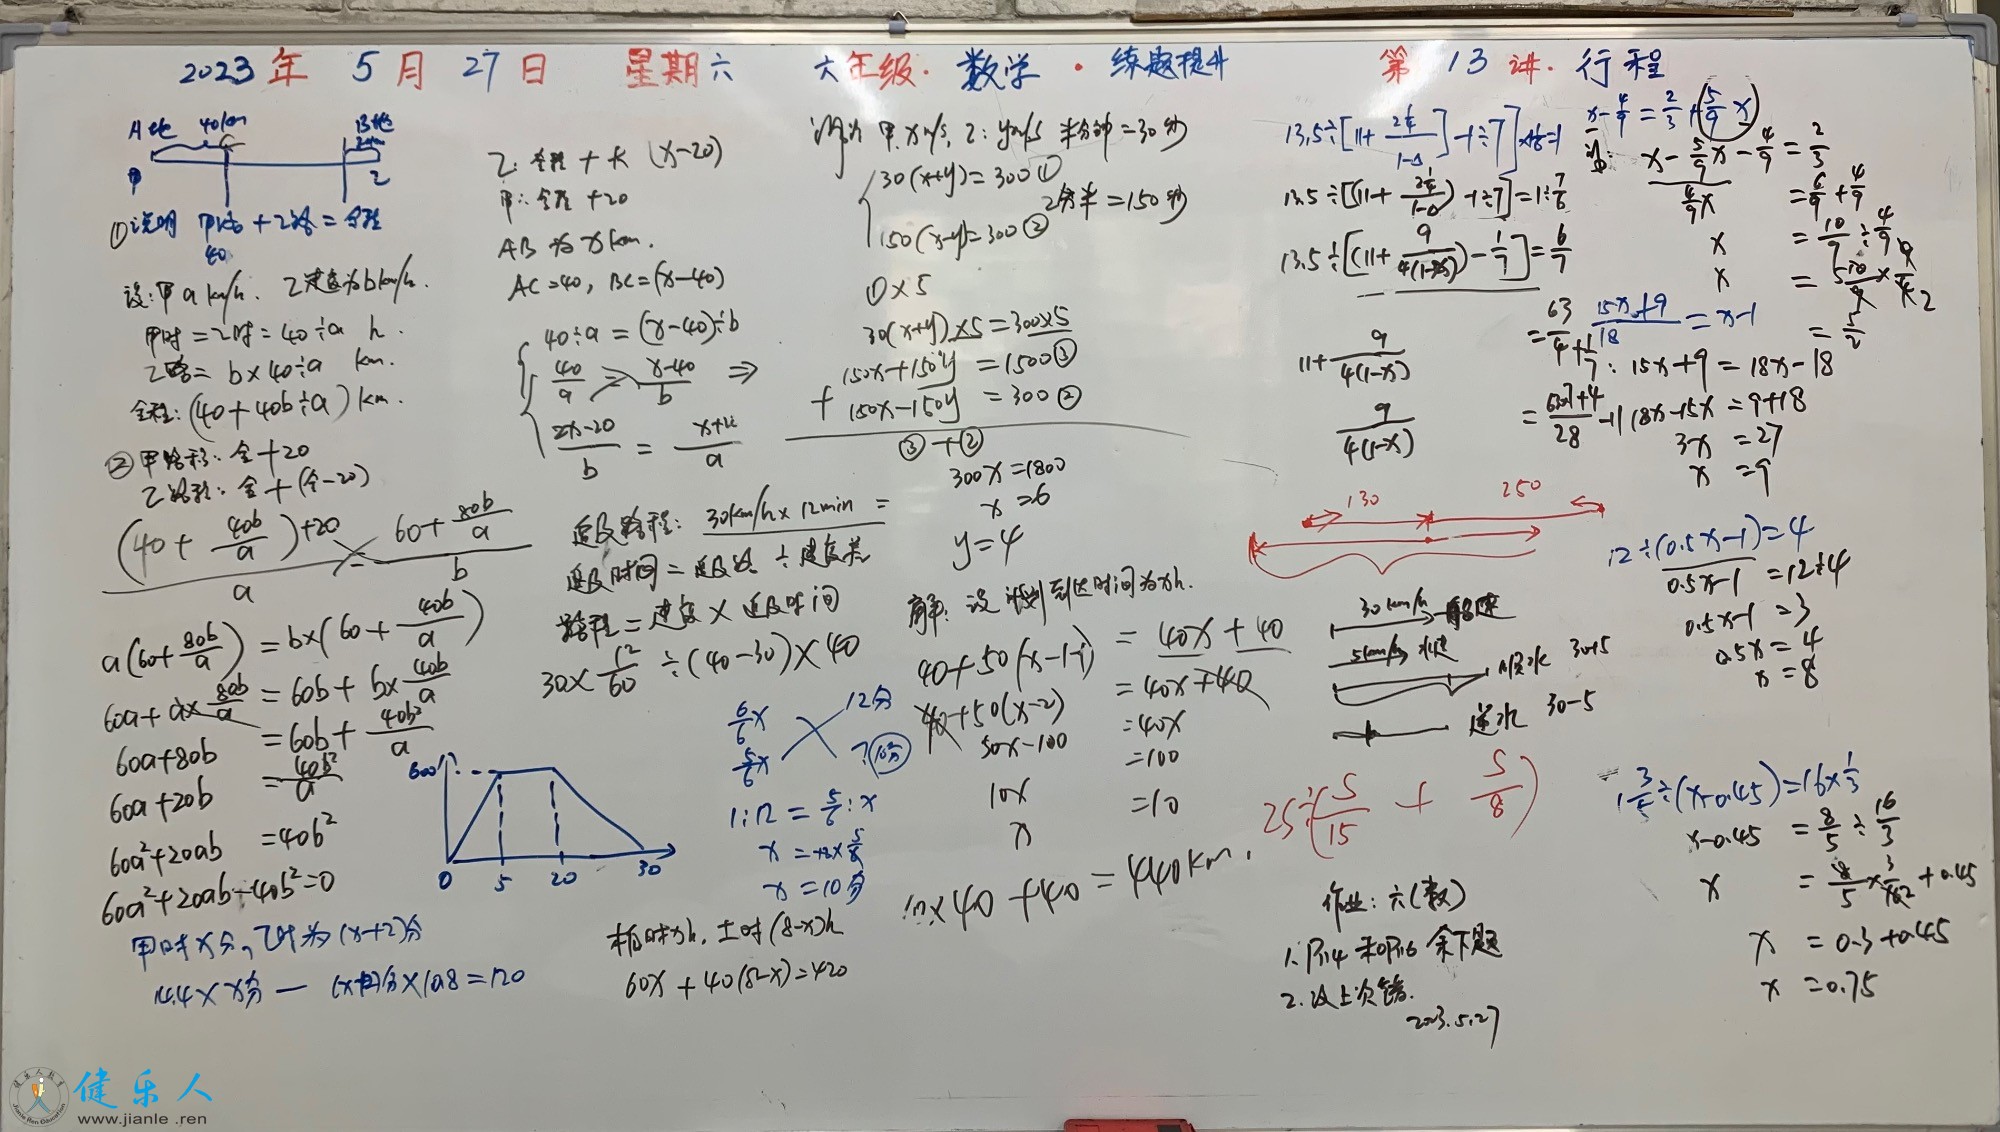 2023年 5月 27日 星期六 六年级·数学·练题提升 第13讲·行程
A地 40km B地
甲 乙
①说明 甲路+乙路=全程
40
设:甲 a km/h. 乙速度为b km/h.
甲时=乙时=40÷a h.
乙路= b×40÷a km.
全程:(40+40b÷a)km.
②甲路程:全+20
乙路程:全+(全-20)
(40+40b/a)+20 60+80b/a
a b
a(60+80b/a) =b×(60+40b/a)
60a+a×80b/a =60b+b×40b/a
60a+80b =60b+40b²/a
60a+20b =40b²/a
60a²+20ab =40b²
60a²+20ab-40b²=0
甲时x分,乙时为(x+2)分
14.4×x分-(x+2)分×10.8=120
乙:全程+ (x-20)
甲:全程+20
AB为xkm.
AC=40, BC=(x-40)
40÷a=(x-40)÷b
40/a = x-40/b ⇒
2x-20/b =
追及路程:30km/h×12min=
追及时间=追及路÷速度差
路程=速度×追及时间
30×12/60÷(40-30)×40
600
0 5 20 30
6/6x 12分
5/6x ?(10分)
1:12=5/6:x
x=12×5/6
x=10分
60x+40(8-x)=420
设为甲:x m/s,乙:y m/s 半分钟=30秒
30(x+y)=300①
2分半=150秒
150(x-y)=300②
①×5
30(x+y)×5=300×5
150x+150y=1500③
+150x-150y=300②
③+②
300x=1800
x=6
y=4
解:设计划到达时间为xh.
40+50(x-1-1)=40x+40
=40x+40
40+50(x-2) =40x
50x-100 =100
10x =10
x
10×40+40=440km.
13.5÷[(11+9/4(1-x))-1/7]=6/7
11+9/4(1-x)
9/4(1-x)
=63/4+1/7
130 250
30km/h 船速
5km/h 水速
顺水 30+5
逆水 30-5
25÷(5/15+5/8)
作业:六(数)
1.P14和P16余下题
2.改上次错.
2023.5.27
x-4/9=2/3+(5/9x)
x-5/9x-4/9=2/3
4/9x =6/9+4/9
x =10/9÷4/9
x
=5/2
15x+9/18=x-1
15x+9=18x-18
18x-15x=9+18
3x =27
x =9
12÷(0.5x-1)=4
0.5x-1 =12÷4
0.5x-1 =3
0.5x =4
x =8
1 3/5÷(x-0.45)=16×1/3
x-0.45 =8/5÷16/3
x =8/5×3/16+0.45
x =0.3+0.45
x =0.75
健乐人
www.jianle.ren